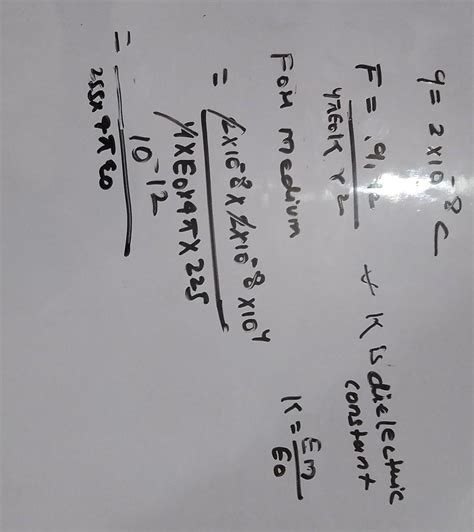 q = 2 × 10⁻⁸ C
F = q₁q₂ / 4πε₀K r² → K is dielectric constant
For medium K = εm / ε0
= 2×10⁻⁸ × 2×10⁻⁸ × 10⁴ / 4×ε0×4π×225
= 10⁻¹² / 225×4πε0